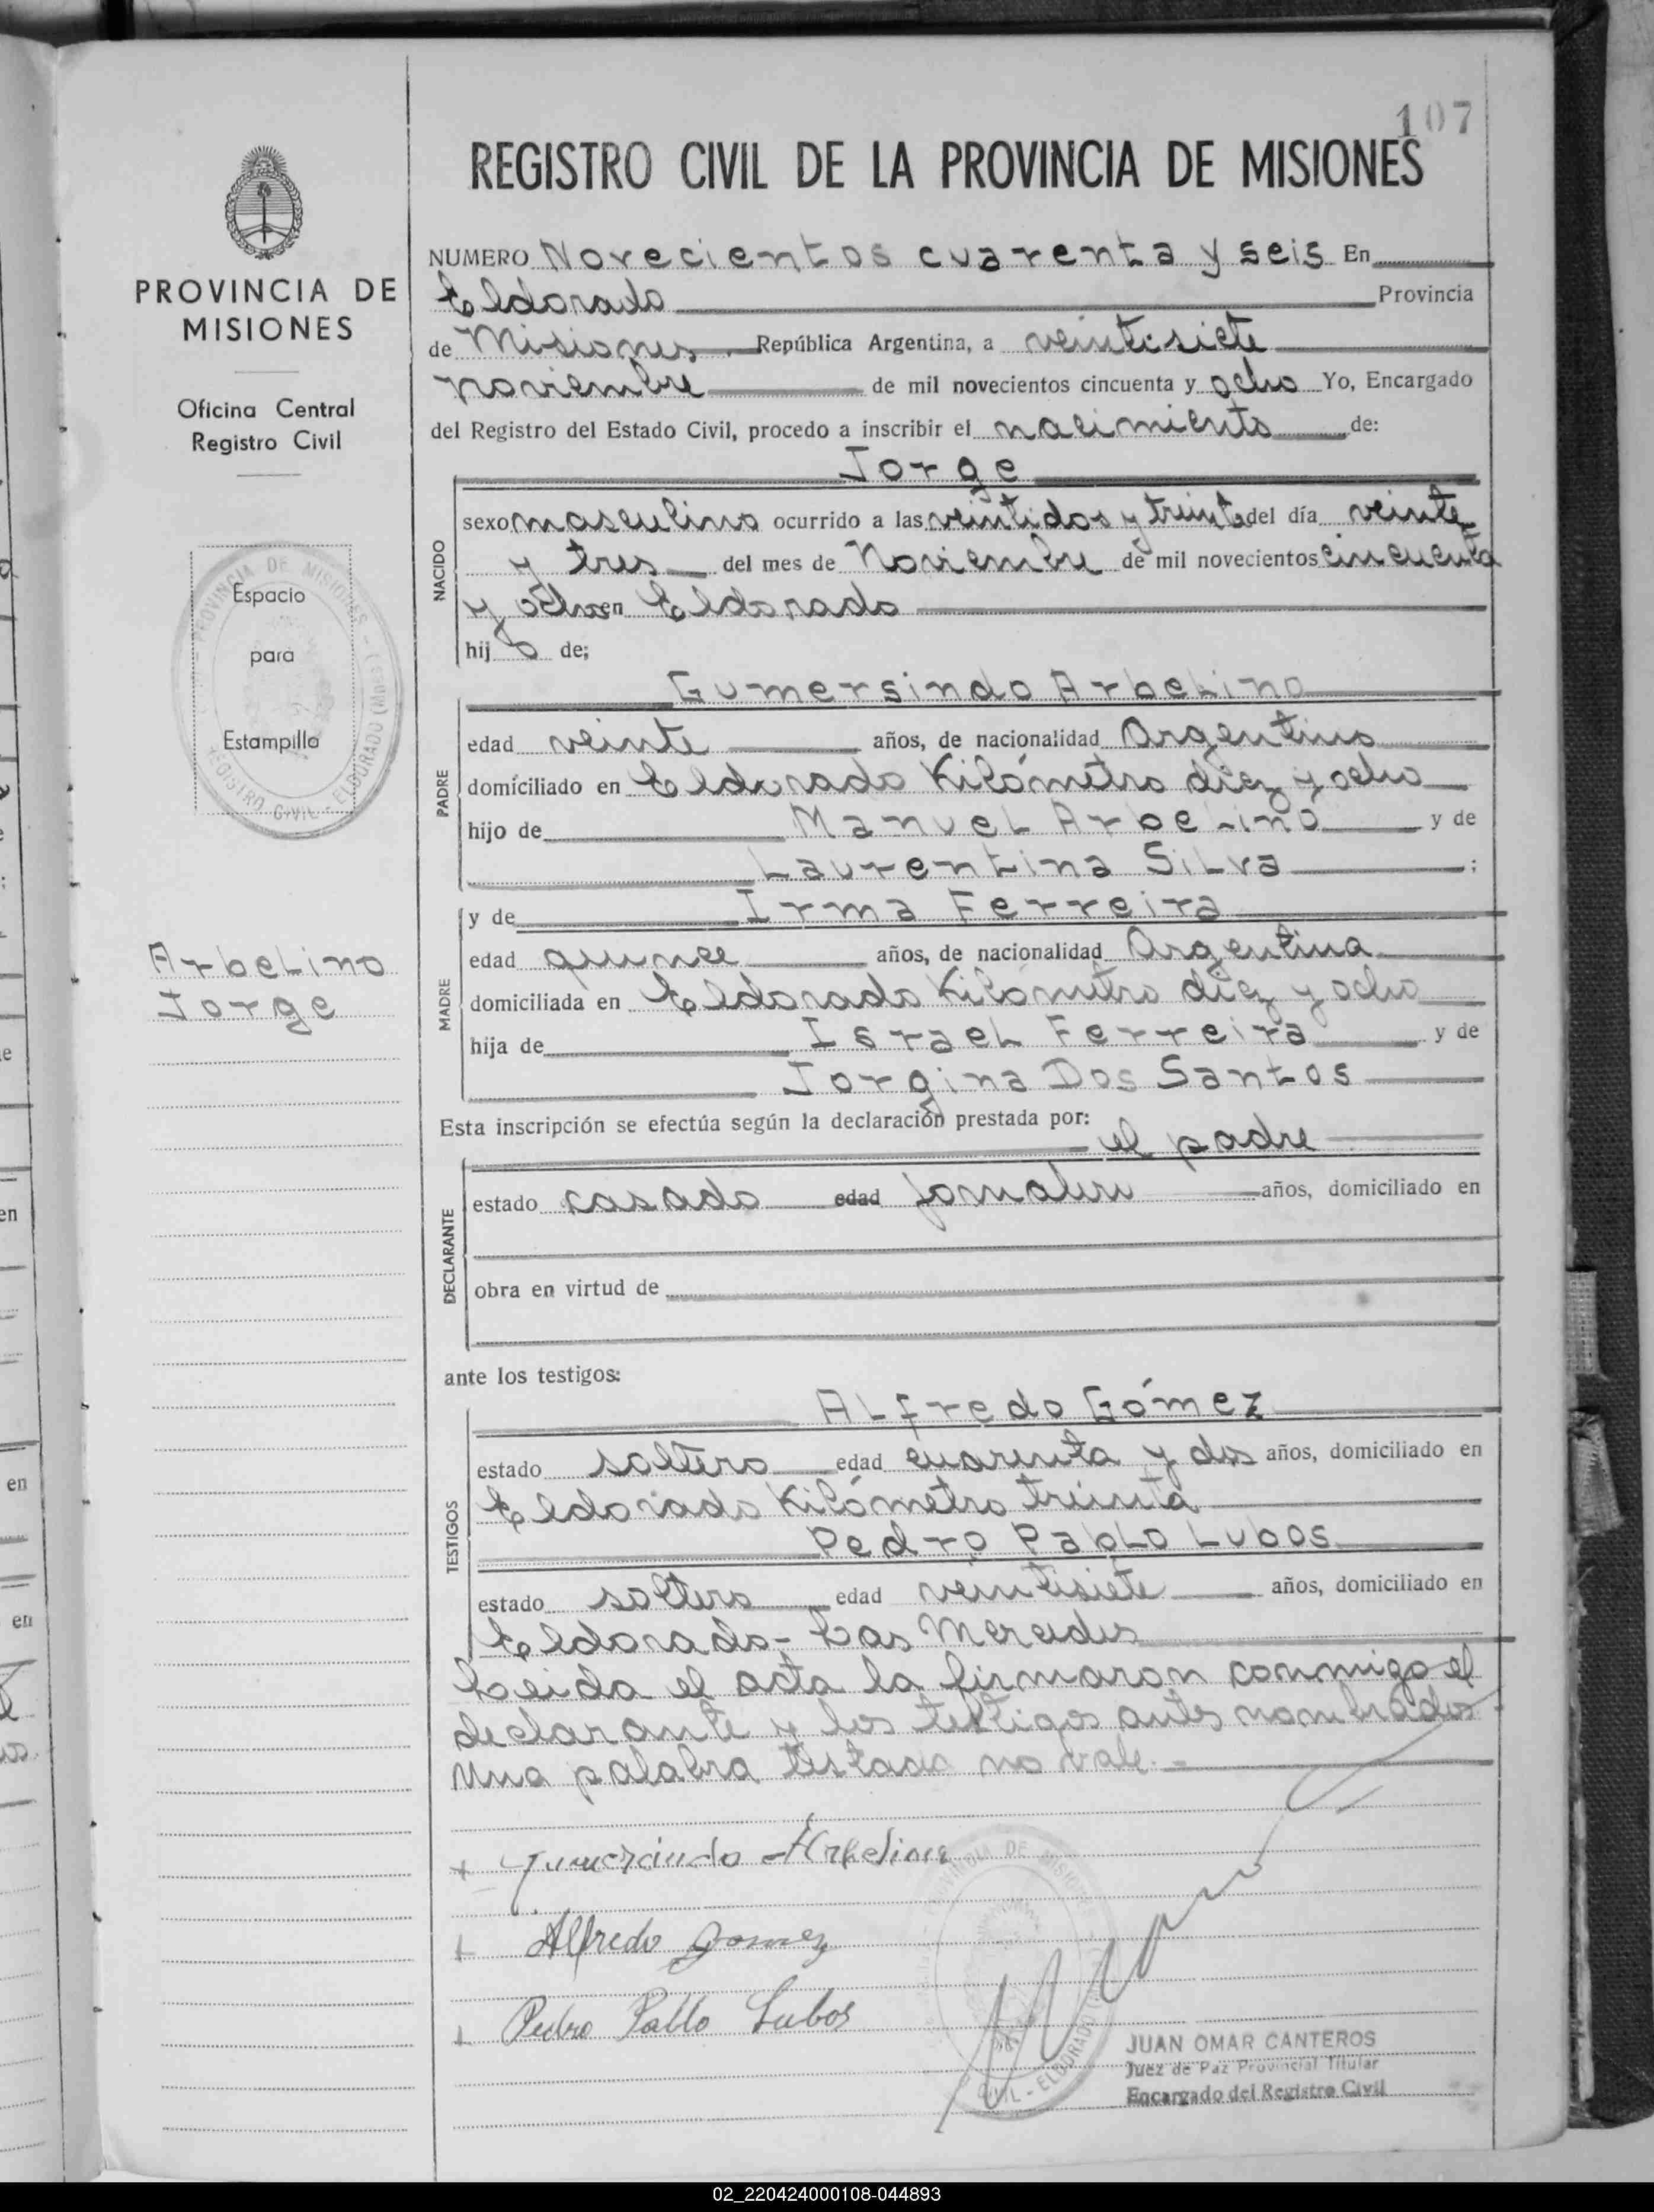 107
REGISTRO CIVIL DE LA PROVINCIA DE MISIONES
PROVINCIA DE
MISIONES
Oficina Central
Registro Civil
Espacio
para
Estampilla
PROVINCIA DE MISIONES - REGISTRO CIVIL - ELDORADO
Arbelino
Jorge
NUMERO Novecientos cuarenta y seis En
Eldorado Provincia
de Misiones República Argentina, a veintisiete
noviembre de mil novecientos cincuenta y ocho Yo, Encargado
del Registro del Estado Civil, procedo a inscribir el nacimiento de:
Jorge
NACIDO
sexo masculino ocurrido a las veintidos y treinta del día veinte
y tres del mes de Noviembre de mil novecientos cincuenta
y ocho en Eldorado
hijo de;
Gumersindo Arbelino
PADRE
edad veinte años, de nacionalidad Argentino
domiciliado en Eldorado Kilómetro diez y ocho
hijo de Manuel Arbelino y de
Laurentina Silva ;
y de Irma Ferreira
MADRE
edad quince años, de nacionalidad Argentina
domiciliada en Eldorado Kilómetro diez y ocho
hija de Israel Ferreira y de
Jorgina Dos Santos
Esta inscripción se efectúa según la declaración prestada por:
el padre
DECLARANTE
estado casado edad jornalero años, domiciliado en
obra en virtud de
ante los testigos:
Alfredo Gómez
TESTIGOS
estado soltero edad cuarenta y dos años, domiciliado en
Eldorado Kilómetro treinta
Pedro Pablo Lubos
estado soltero edad veintisiete años, domiciliado en
Eldorado - Las Mercedes
Leida el acta la firmaron conmigo el
declarante y los testigos antes nombrados.
Una palabra testada no vale.-
Gumersindo Arbelino
Alfredo Gomez
Pedro Pablo Lubos
JUAN OMAR CANTEROS
Juez de Paz Provincial Titular
Encargado del Registro Civil
02_220424000108-044893